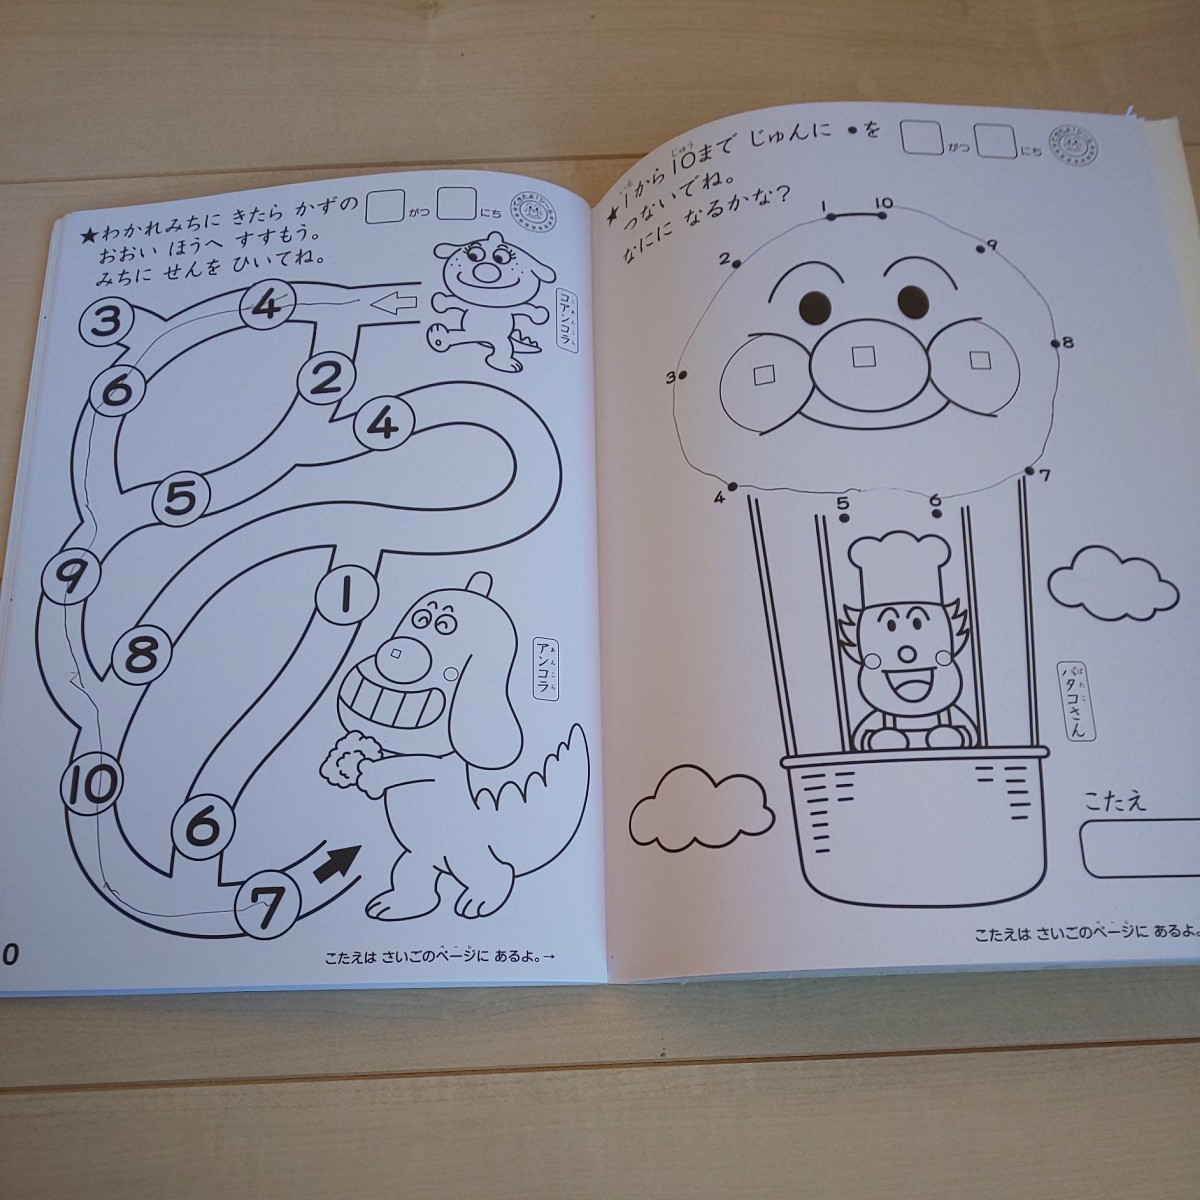 ★わかれみちに きたら かずの
おおい ほうへ すすもう。
みちに せんを ひいてね。
がつ にち
コアンコラ
3
4
6
2
4
5
9
8
1
10
6
7
アンコラ
あんこら
こたえは さいごのページに あるよ。→
0
★1から10まで じゅんに ●を
つないでね。
なにに なるかな?
がつ にち
1
10
2
9
3
8
4
5
6
7
バタコさん
ばたこ
こたえ
こたえは さいごのページに あるよ。